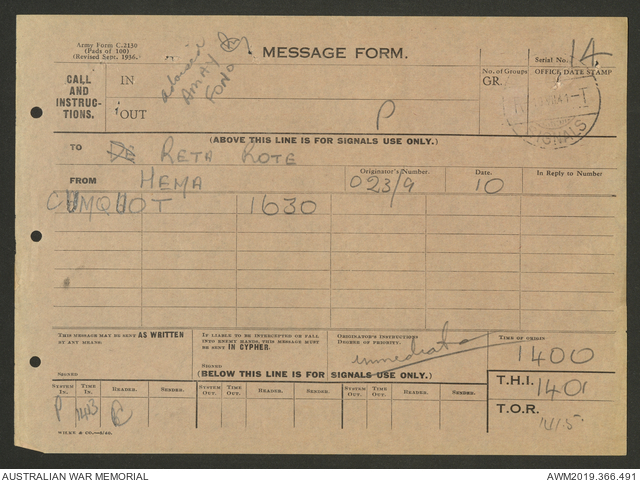 Army Form C.2130
(Pads of 100)
(Revised Sept. 1936.
MESSAGE FORM.
Serial No. 14
CALL AND INSTRUCTIONS.
IN
OUT
advise
AMAY
FONO
P
No. of Groups
GR.
OFFICE DATE STAMP
SIGNALS
(ABOVE THIS LINE IS FOR SIGNALS USE ONLY.)
TO RETA KOTE
FROM HEMA
Originator's Number. 023/9
Date. 10
In Reply to Number
CUMQUOT 1630
THIS MESSAGE MAY BE SENT AS WRITTEN
BY ANY MEANS.
SIGNED
IF LIABLE TO BE INTERCEPTED OR FALL
INTO ENEMY HANDS, THIS MESSAGE MUST
BE SENT IN CYPHER.
SIGNED
ORIGINATOR'S INSTRUCTIONS
DEGREE OF PRIORITY.
immediate
TIME OF ORIGIN
1400
(BELOW THIS LINE IS FOR SIGNALS USE ONLY.)
T.H.I. 1401
T.O.R. 1415
SYSTEM IN. TIME IN. READER. SENDER. SYSTEM OUT. TIME OUT. READER. SENDER. SYSTEM OUT. TIME OUT. READER. SENDER.
P 1403
AUSTRALIAN WAR MEMORIAL
AWM2019.366.491